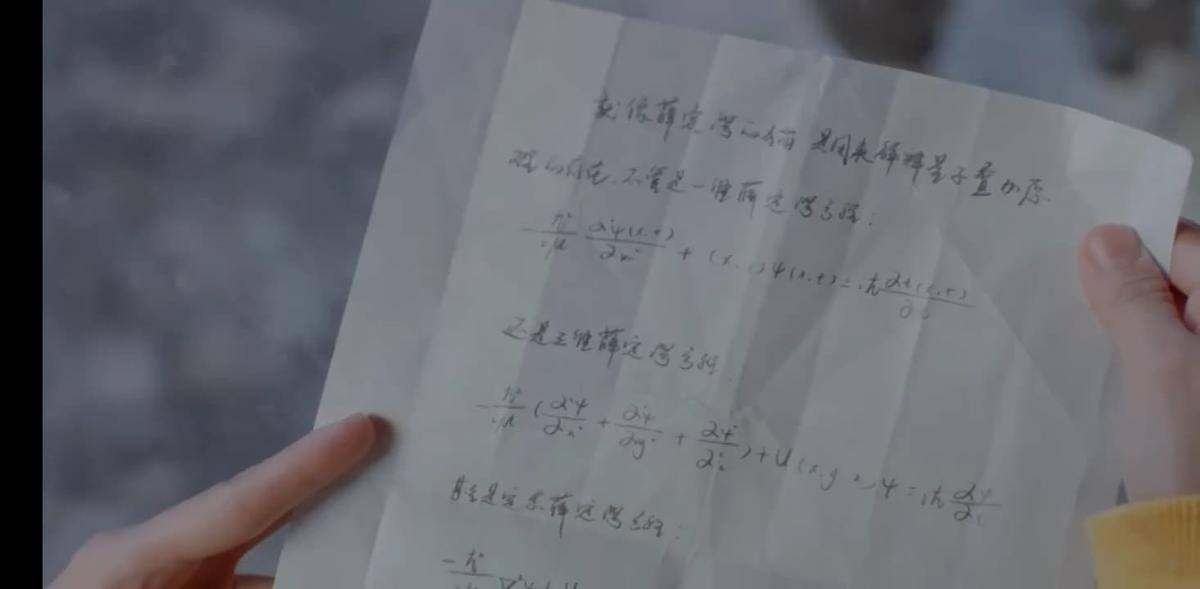 就像薛定谔的猫 是用来解释量子叠加原
理的存在,不管是一维薛定谔方程:
-ħ²/2μ ∂²ψ(x,t)/∂x² + U(x,t)ψ(x,t) = iħ ∂ψ(x,t)/∂t
还是三维薛定谔方程.
-ħ²/2μ (∂²ψ/∂x² + ∂²ψ/∂y² + ∂²ψ/∂z²) + U(x,y,z)ψ = iħ ∂ψ/∂t
甚至是定态薛定谔方程: